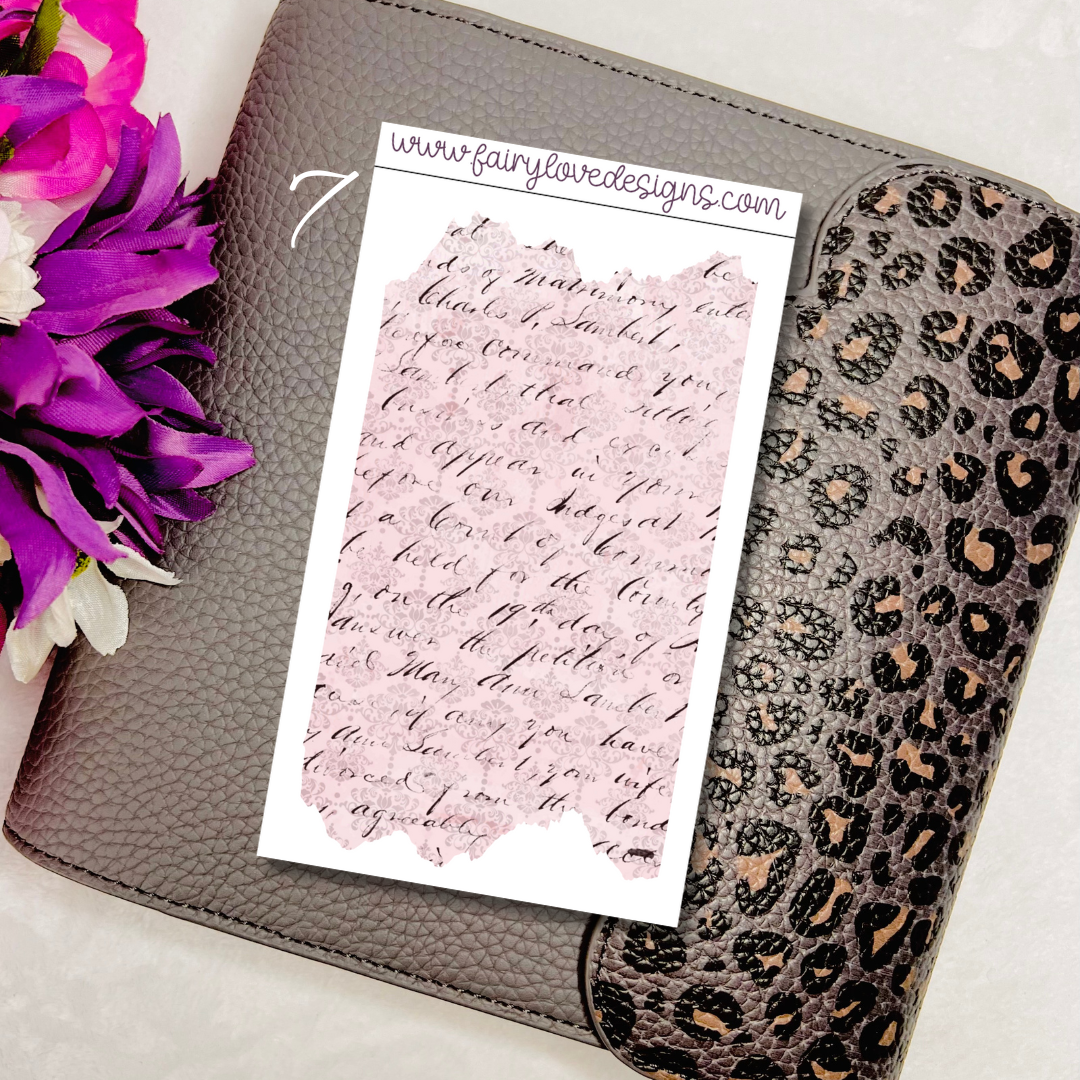 www.fairylovedesigns.com
7
at the be
nds of Matrimony ente
Charles P. Lambert,
Command you
that setting
and
and appear in your
before our Judges at
a Court of Common
be held for the County
on the 19th day of
answer the petition or
Mary Ann Lamber
cause if any you have,
Ann Lambert, your wife
divorced from the bond
agreeably